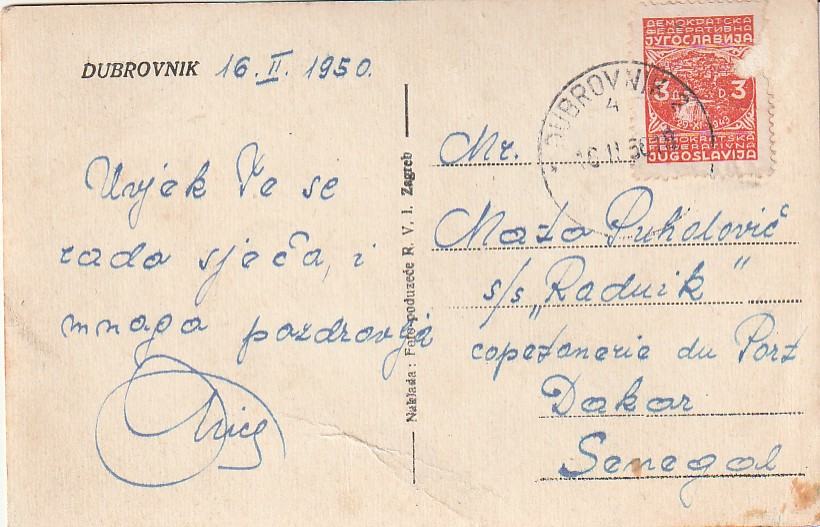 DUBROVNIK 16. II. 1950.
Uvjek Te se
rado sjeća, i
mnogo pozdravlja
Naklada: Foto-poduzeće R. V. I. Zagreb
ДЕМОКРАТСКА
ФЕДЕРАТИВНА
ЈУГОСЛАВИЈА
3 D 3
29-XI-1943
DEMOKRATSKA
FEDERATIVNA
JUGOSLAVIJA
DUBROVNIK 2
4
16 II 50
Mr.
Mato Puholović
s/s „Radnik"
copetonerie du Port
Dakar
Senegal